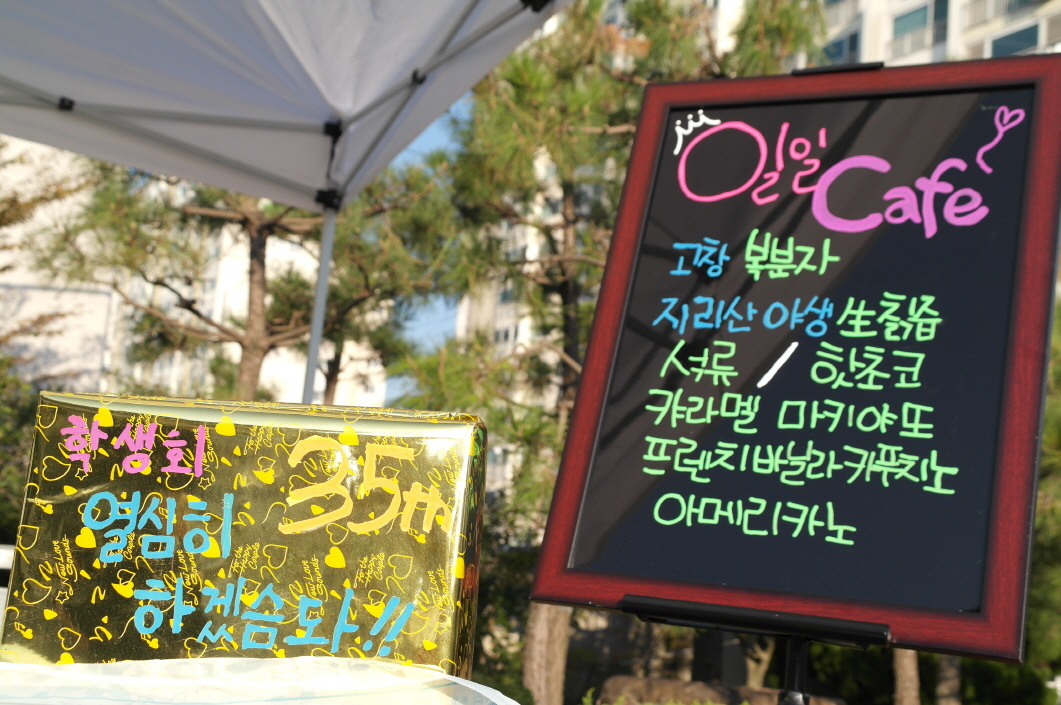 일일 Cafe
고창 복분자
지리산 야생 生칡즙
석류 / 핫초코
캬라멜 마키야또
프렌치바닐라카푸치노
아메리카노
학생회 35대
열심히
하겠슴돠!!
For the Happy Couple
New Love Sounds